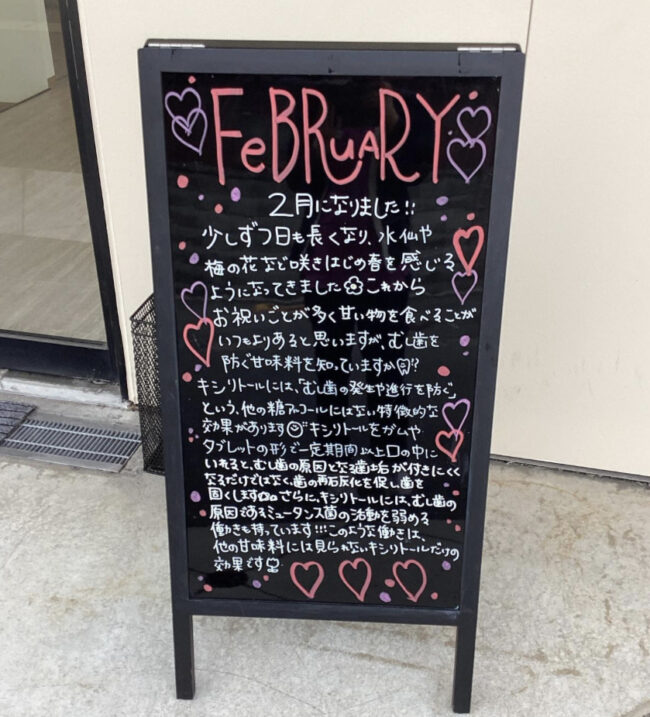 FeBRuARY
2月になりました!!
少しずつ日も長くなり、水仙や
梅の花など咲きはじめ春を感じる
ようになってきました これから
お祝いごとが多く甘い物を食べることが
いつもよりあると思いますが、むし歯を
防ぐ甘味料を知っていますか!?
キシリトールには、「むし歯の発生や進行を防ぐ」
という、他の糖アルコールにはない特徴的な
効果があります キシリトールをガムや
タブレットの形で一定期間以上口の中に
いれると、むし歯の原因となる歯垢が付きにくく
なるだけではなく、歯の再石灰化を促し、歯を
固くします さらに、キシリトールには、むし歯の
原因であるミュータンス菌の活動を弱める
働きも持っています!!!このような働きは、
他の甘味料には見られないキシリトールだけの
効果です